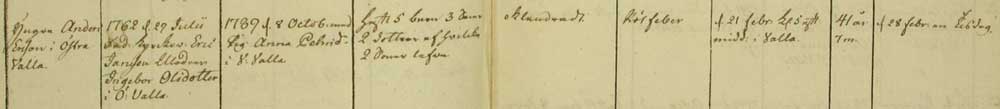 Yngve Anders
Enson i Östra
Valla
1762 d 29 Julii
Fad. Kyrkew. Eric
Jansson Modren
Ingebor Olsdotter
i Ö. Valla.
1789 d 8 Octob. med
Pig. Anna Pehrsd-
i V. Valla
haft 5 barn 3 Söner
2 döttrar af hvilka
2 Söner lefva
oklandradt.
Röt feber
d 21 febr. kl 5 eft
midd. i Valla.
41 år
7 m.
d 28 febr. en